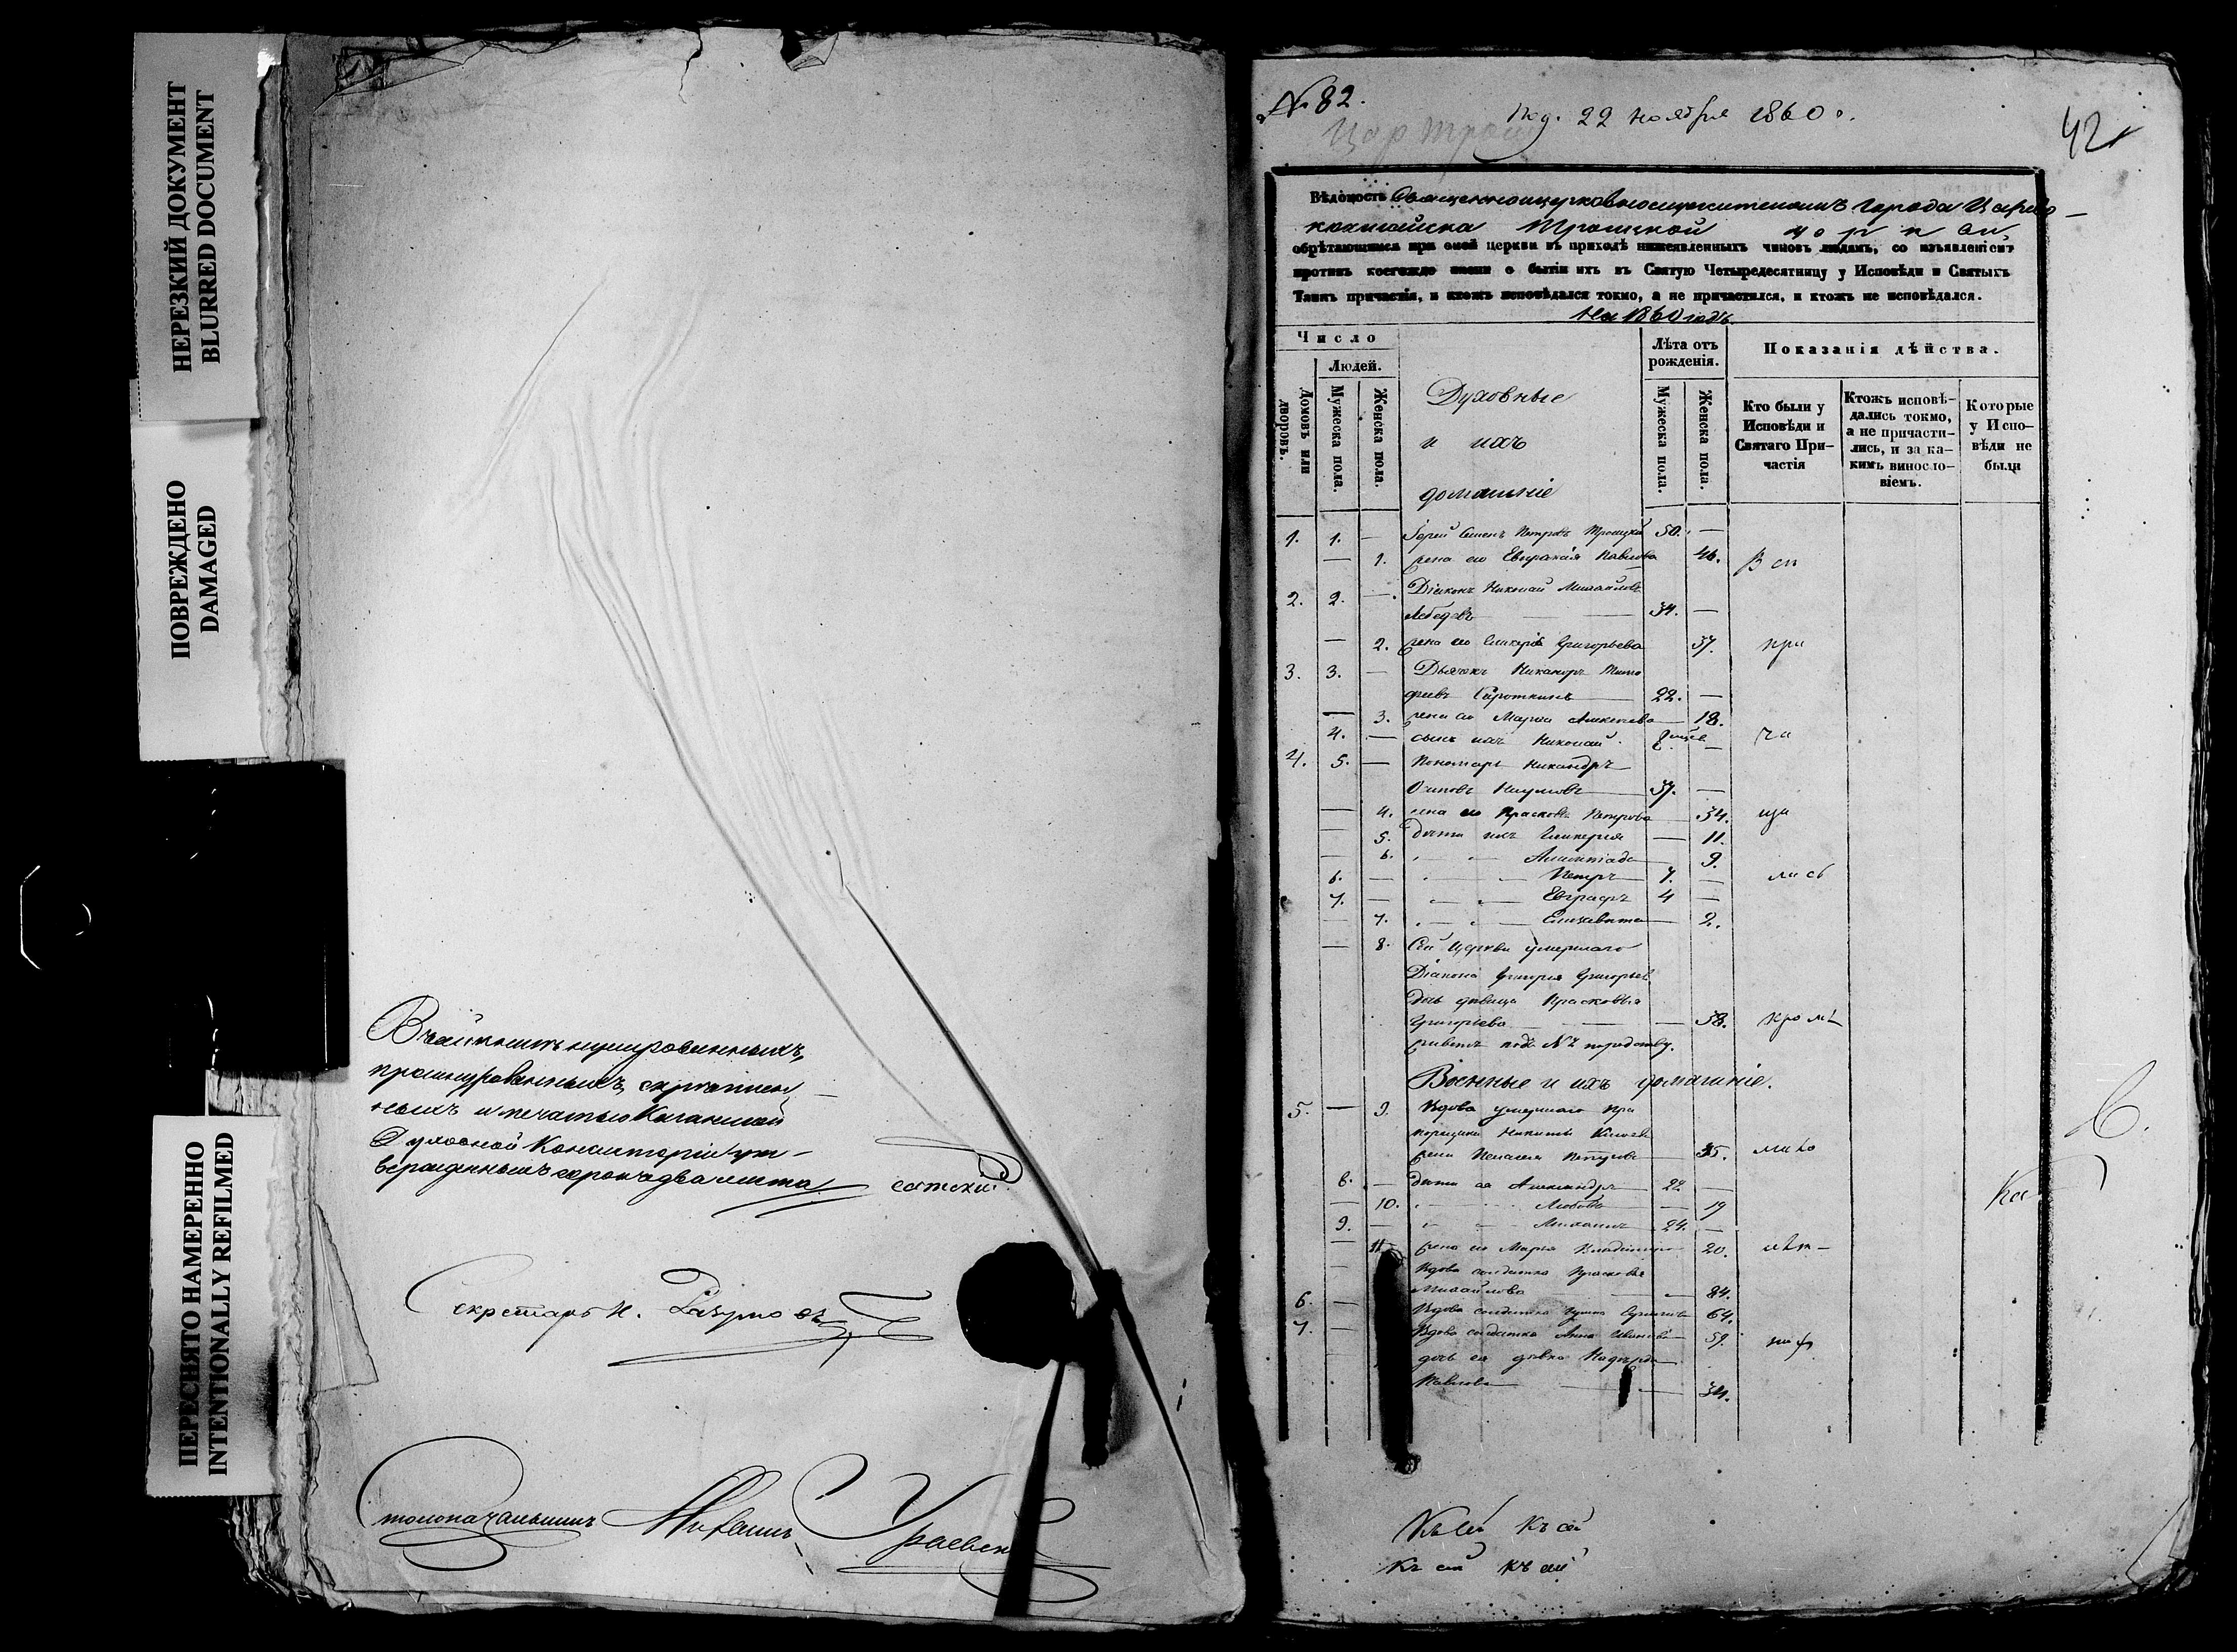 НЕРЕЗКИЙ ДОКУМЕНТ
BLURRED DOCUMENT
ПОВРЕЖДЕНО
DAMAGED
ПЕРЕСНЯТО НАМЕРЕННО
INTENTIONALLY REFILMED
нумерованныхъ,
прошнурованныхъ, скрѣплен
ныхъ и печатью Казанской
Духовной Консисторіи ут-
вержденныхъ сорокъ два листа
Секретарь Н. Разумовъ
Столоначальникъ Михаилъ
№ 82.
Под. 22 ноября 1860 г.
Цар Троиц
42
Вѣдомость Священноцерковнослужителямъ города Царево-
кокшайска Троицкой церкви
обрѣтающимся при оной церкви въ приходѣ нижеявленныхъ чиновъ людямъ, со изъявленіемъ
противъ коегождо имени о бытіи ихъ въ Святую Четыредесятницу у Исповѣди и Святыхъ
Таинъ причастія, и ктожъ исповѣдался токмо, а не причастился, и ктожъ не исповѣдался.
На 1860 годъ.
Число
Людей.
Домовъ или дворовъ.
Мужеска пола.
Женска пола.
Духовные
и ихъ
домашніе
Лѣта отъ рожденія.
Мужеска пола.
Женска пола.
Показанія дѣйства.
Кто были у Исповѣди и Святаго При-частія
Ктожъ исповѣ-дались токмо, а не причасти-лись, и за ка-кимъ винословіемъ.
Которые у Испо-вѣди не были
1. 1. — Іерей Семенъ Петровъ Троицкій 50. —
— 1. жена его Евпраксія Павлова 46. Всѣ
2. 2. — Діаконъ Николай Михайловъ
Лебедевъ 34. —
— 2. жена его Григорьева 37. при
3. 3. — Дьячекъ Никаноръ Тимо
феевъ Сироткинъ 22. —
— 3. жена его Марья Алексѣева 18.
4. — сынъ ихъ Николай ча
4. 5. — Пономарь Никандръ
Осиповъ Наумовъ 37. —
— 4. жена его Прасковья Петрова 34. ща
— 5. дѣти ихъ Гликерія — 11.
— 6. Олимпіада 9.
6. — Петръ 7. — лись
7. — Евграфъ 4 —
— 7. Елизавета — 2.
— 8. Сей церкви умершаго
Діакона Григорія Григорьева
дочь дѣвица Прасковья
Григорьева — 58. кромѣ
живетъ подъ № 4 по родству.
Военные и ихъ домашніе.
5. — 9. Вдова умершаго Пра
порщика Никиты
жена Пелагея Петрова 55. мало
8. — дѣти ея Александръ 22 —
— 10. Любовь — 19
9. — Михаилъ 24. —
— 11 жена его Марья Владимірова 20. лѣт-
Вдова солдатка Прасковья
6. — Михайлова 84.
7. — Вдова солдатка 64.
Вдова солдатка Анна Иванова 59.
дочь ея дѣвка Надежда
Павлова 34.
Къ сей Къ сей
Къ сей Къ сей